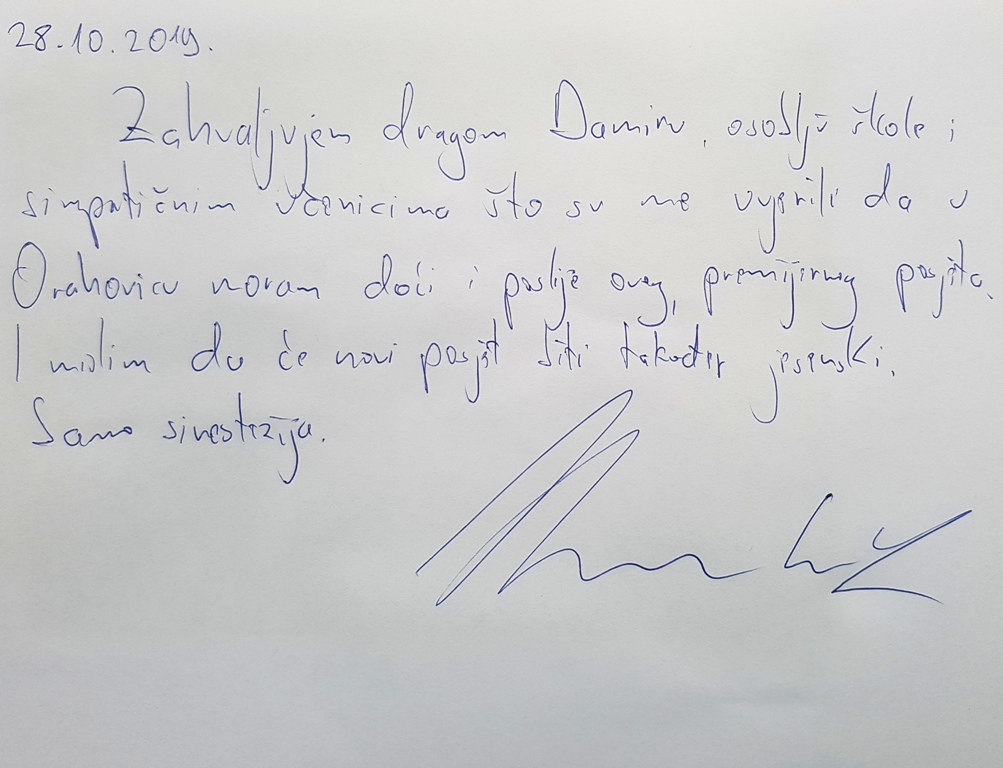 28.10.2019.
Zahvaljujem dragom Damiru, osoblju škole i
simpatičnim učenicima što su me uvjerili da u
Orahovicu moram doći i poslije ovog, premijernog posjeta.
I mislim da će novi posjet biti također jesenski.
Samo sinestezija.